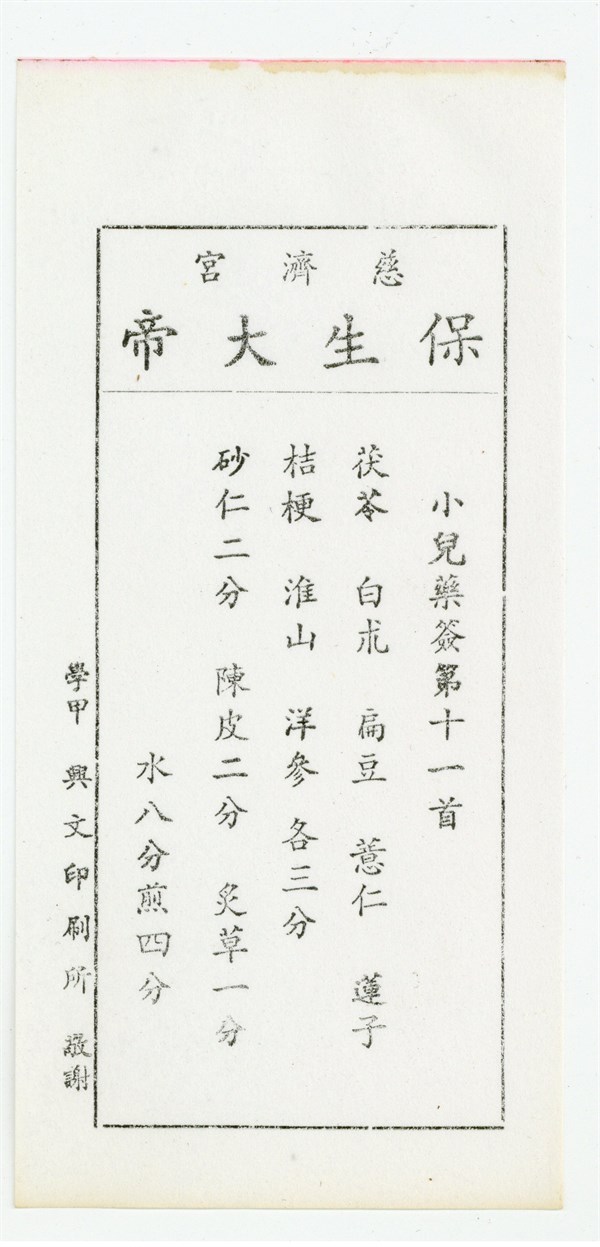 慈濟宮
保生大帝
小兒藥簽第十一首
茯苓 白朮 扁豆 薏仁 蓮子
桔梗 淮山 洋參 各三分
砂仁二分 陳皮二分 炙草一分
水八分煎四分
學甲 興文印刷所 敬謝